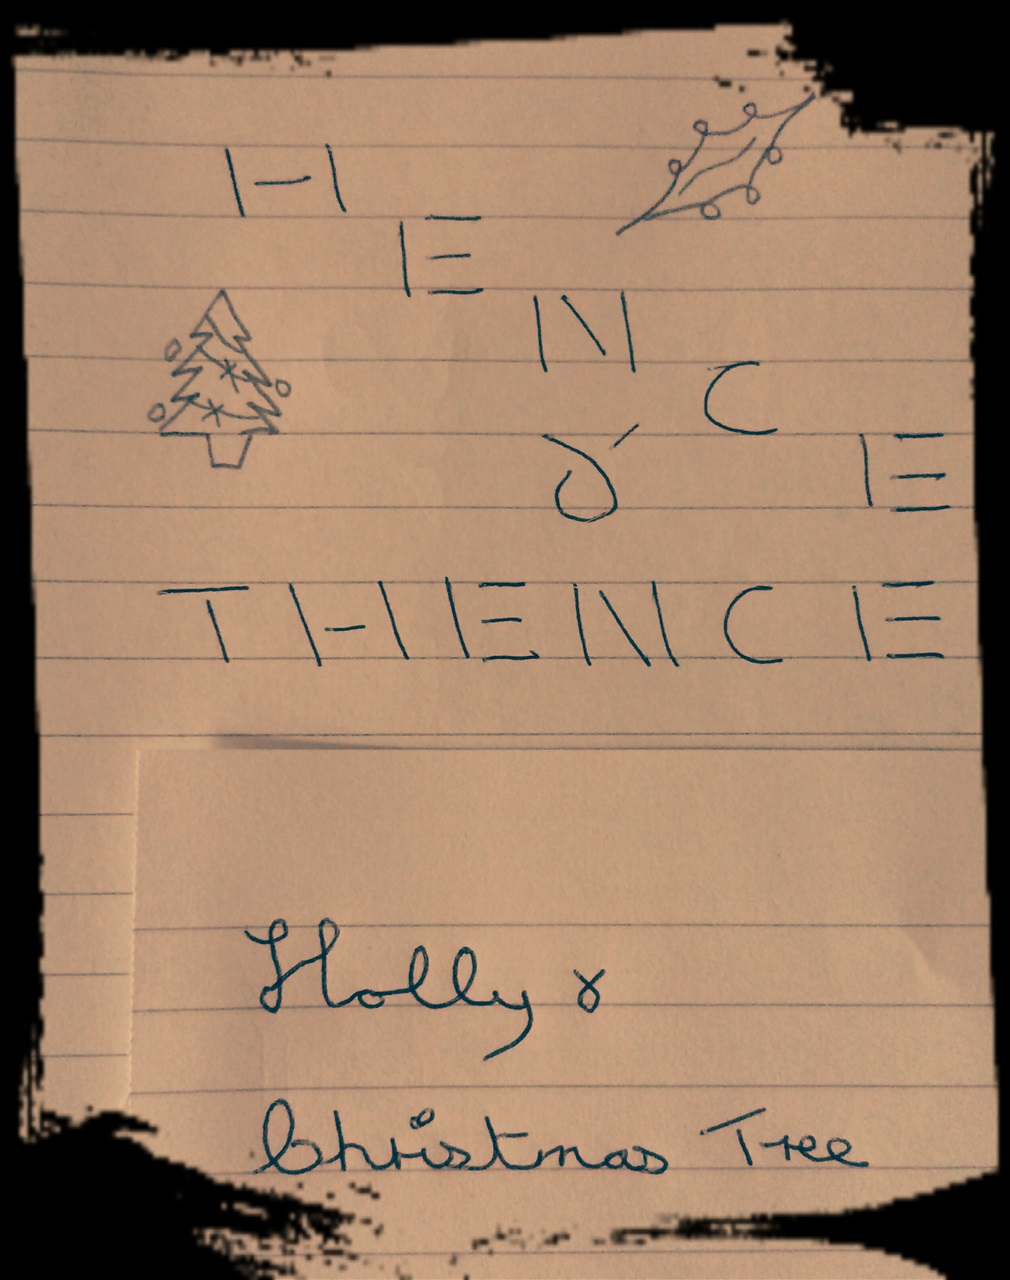 H
E
N
C
E
&
THENCE
Holly &
Christmas Tree